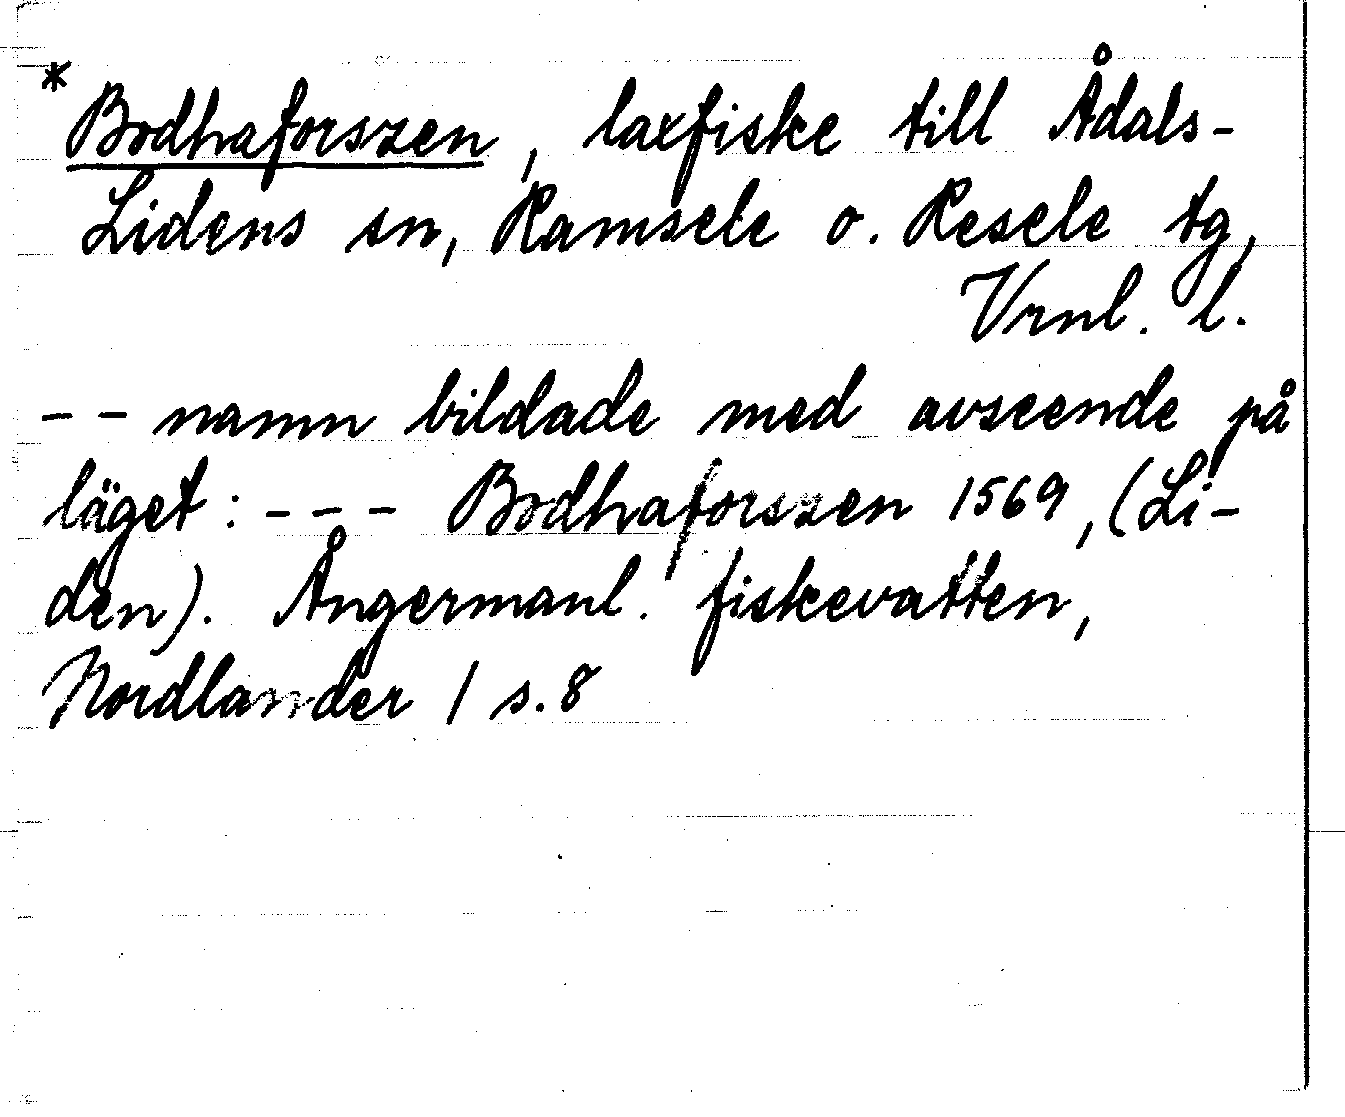 * Bodhaforszen, laxfiske till Ådals-
Lidens sn, Ramsele o. Resele tg,
Vrnl. l.
- - namn bildade med avseende på
läget: - - - Bodhaforszen 1569, (Li-
den). Ångermanl. fiskevatten,
Nordlander 1 s. 8